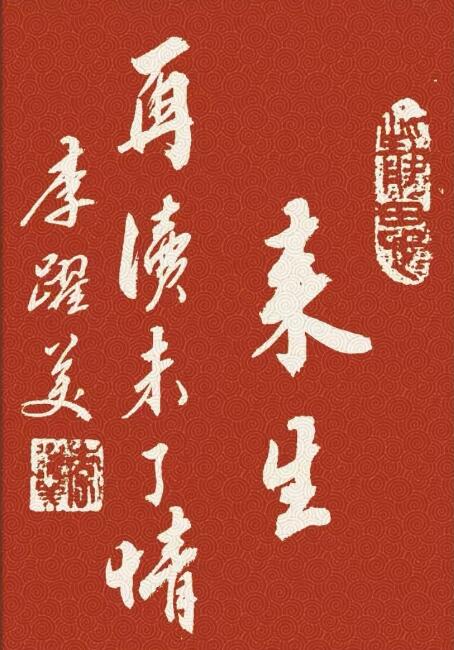 来生
再續未了情
李躍美